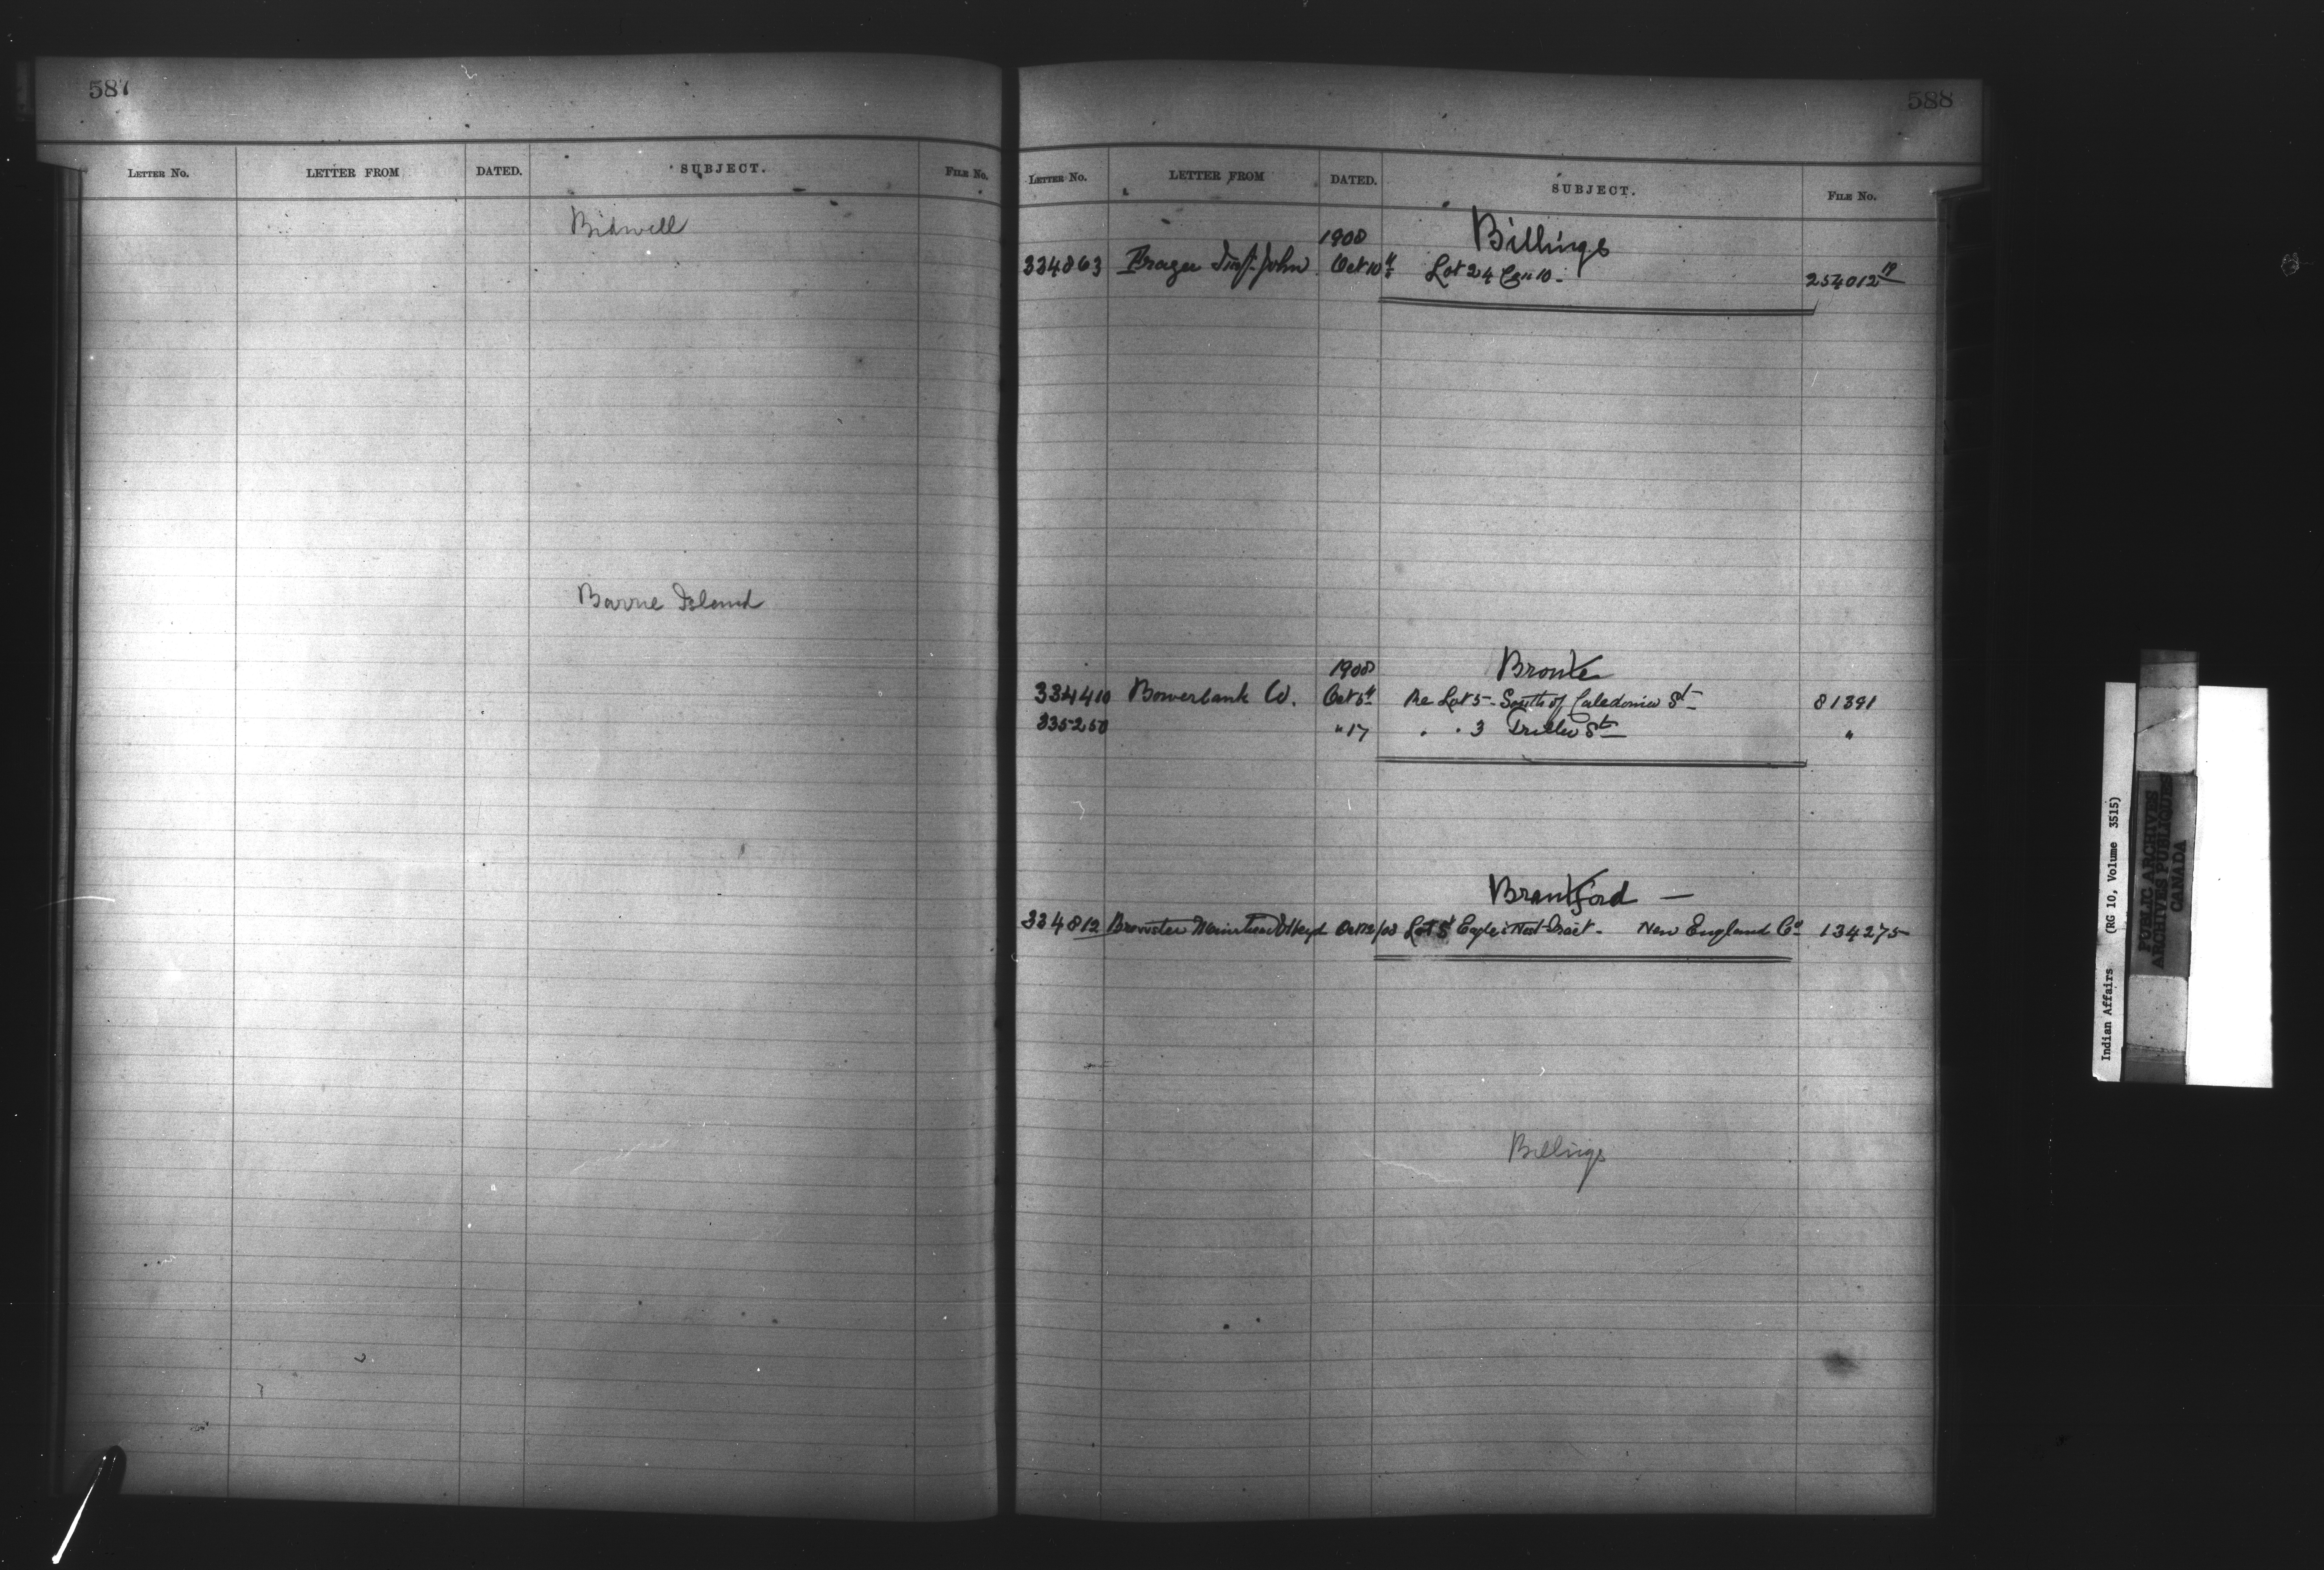 587
LETTER No. LETTER FROM DATED. SUBJECT. FILE No.
Bidwell
Barrie Island
588
LETTER No. LETTER FROM DATED. SUBJECT. FILE No.
1908 Billings
334863 Frazer John Oct 10 Lot 24 Con 10 - 254012
1908 Bronte
334410 Bowerbank W. Oct 5 Re Lot 5 - South of Caledonia St 81391
335250 " 17 . . 3 St "
Brantford -
334812 Brewster Muirhead & Heyd Oct 12/08 Lot 5 Eagles Nest Tract - New England Co 134275
Billings
Indian Affairs (RG 10, Volume 3515)
PUBLIC ARCHIVES
ARCHIVES PUBLIQUES
CANADA